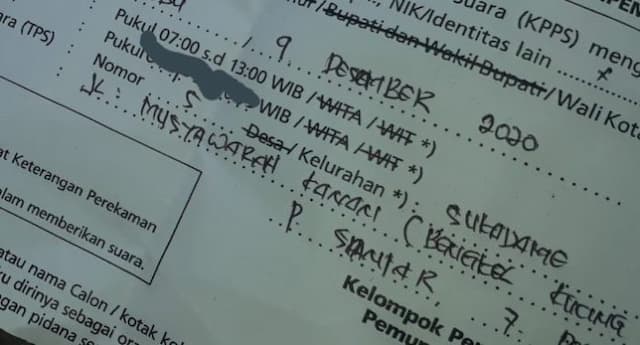 uara (KPPS) meng
NIK/Identitas lain ........
/Bupati dan Wakil Bupati/Wali Kota
ara (TPS)
/ 9 DESEMBER 2020
Pukul 07:00 s.d 13:00 WIB / WITA / WIT *)
Pukul WIB / WITA / WIT *)
Nomor 5 Desa / Kelurahan *) SUKADAME
JL: MUSYAWARAH KANARI (BENGKEL KUCING
P. SIANTAR, 7
Kelompok Pe
Pemu
at Keterangan Perekaman
alam memberikan suara.
atau nama Calon / kotak ko
u dirinya sebagai ora
gan pidana se